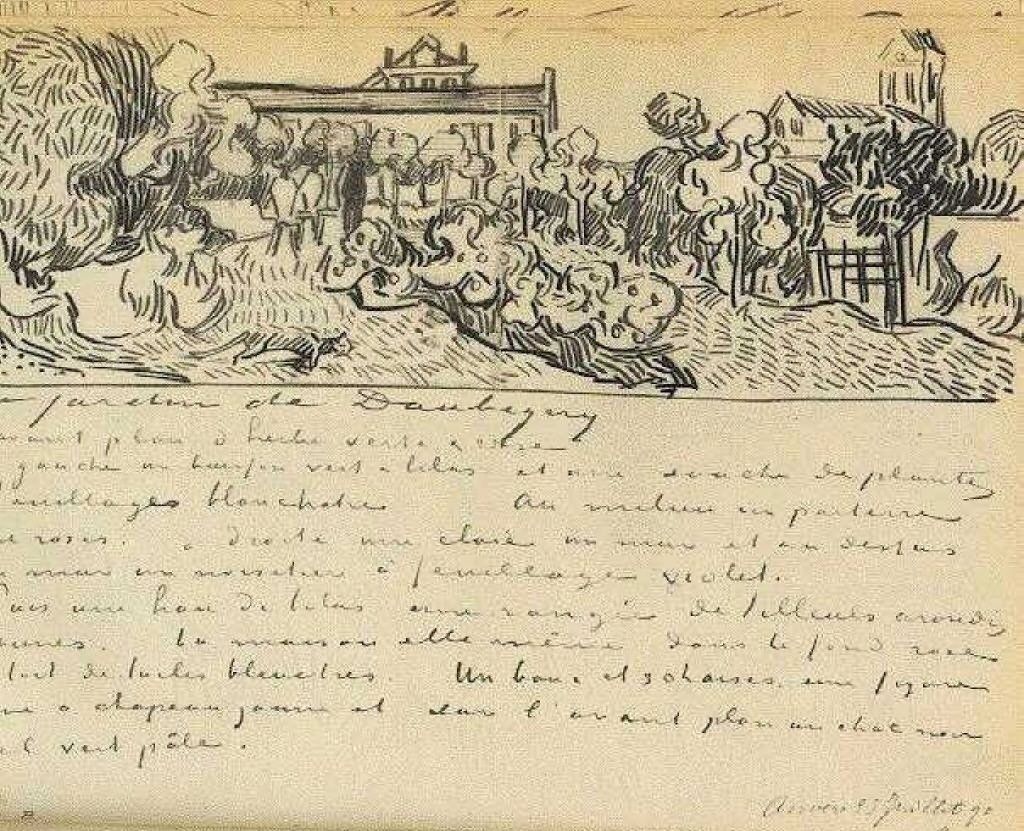 jardin de Daubigny
avant plan d'herbe verte & rose
gauche un buisson vert & lilas et une souche de plantes
feuillages blanchatres Au milieu un parterre
roses. droite une claie un mur et au dessus
mur un noisetier à feuillage violet.
Puis une haie de lilas une rangée de tilleuls arondis
jaunes. La maison elle même dans le fond rose
toit de tuiles bleuatres. Un banc et 3 chaises une figure
à chapeau jaune et sur l'avant plan un chat noir
vert pâle.
Auvers Juillet 90